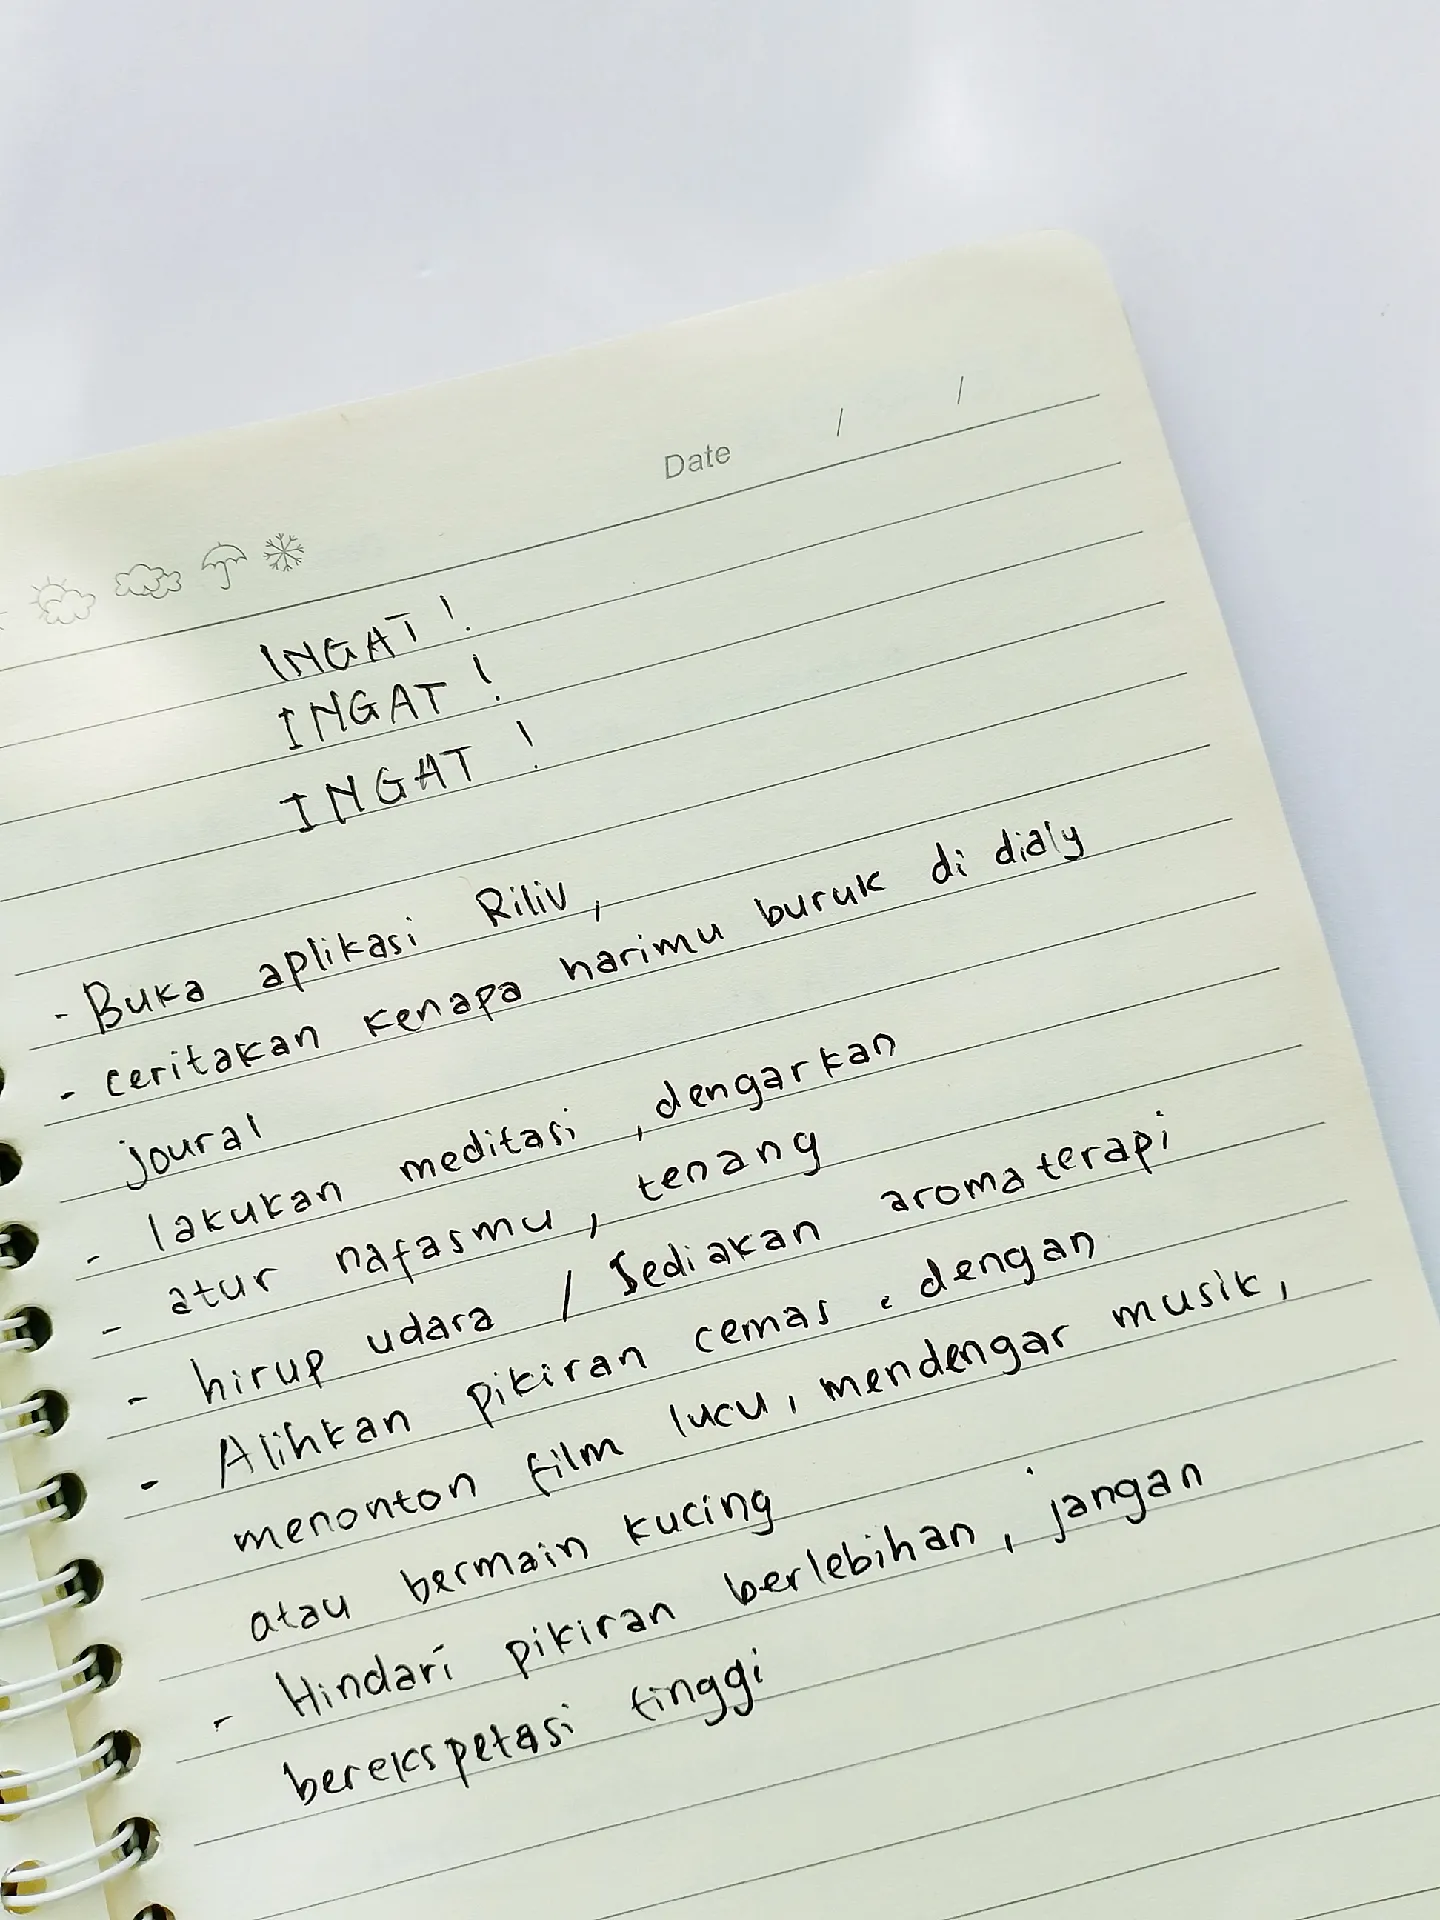 Date / /
INGAT !
INGAT !
INGAT !
- Buka aplikasi Riliv,
- ceritakan kenapa harimu buruk di dialy
joural
- lakukan meditasi, dengarkan
- atur nafasmu, tenang
- hirup udara / Sediakan aroma terapi
- Alihkan pikiran cemas. dengan
menonton film lucu, mendengar musik,
atau bermain kucing
- Hindari pikiran berlebihan, jangan
berekspetasi tinggi